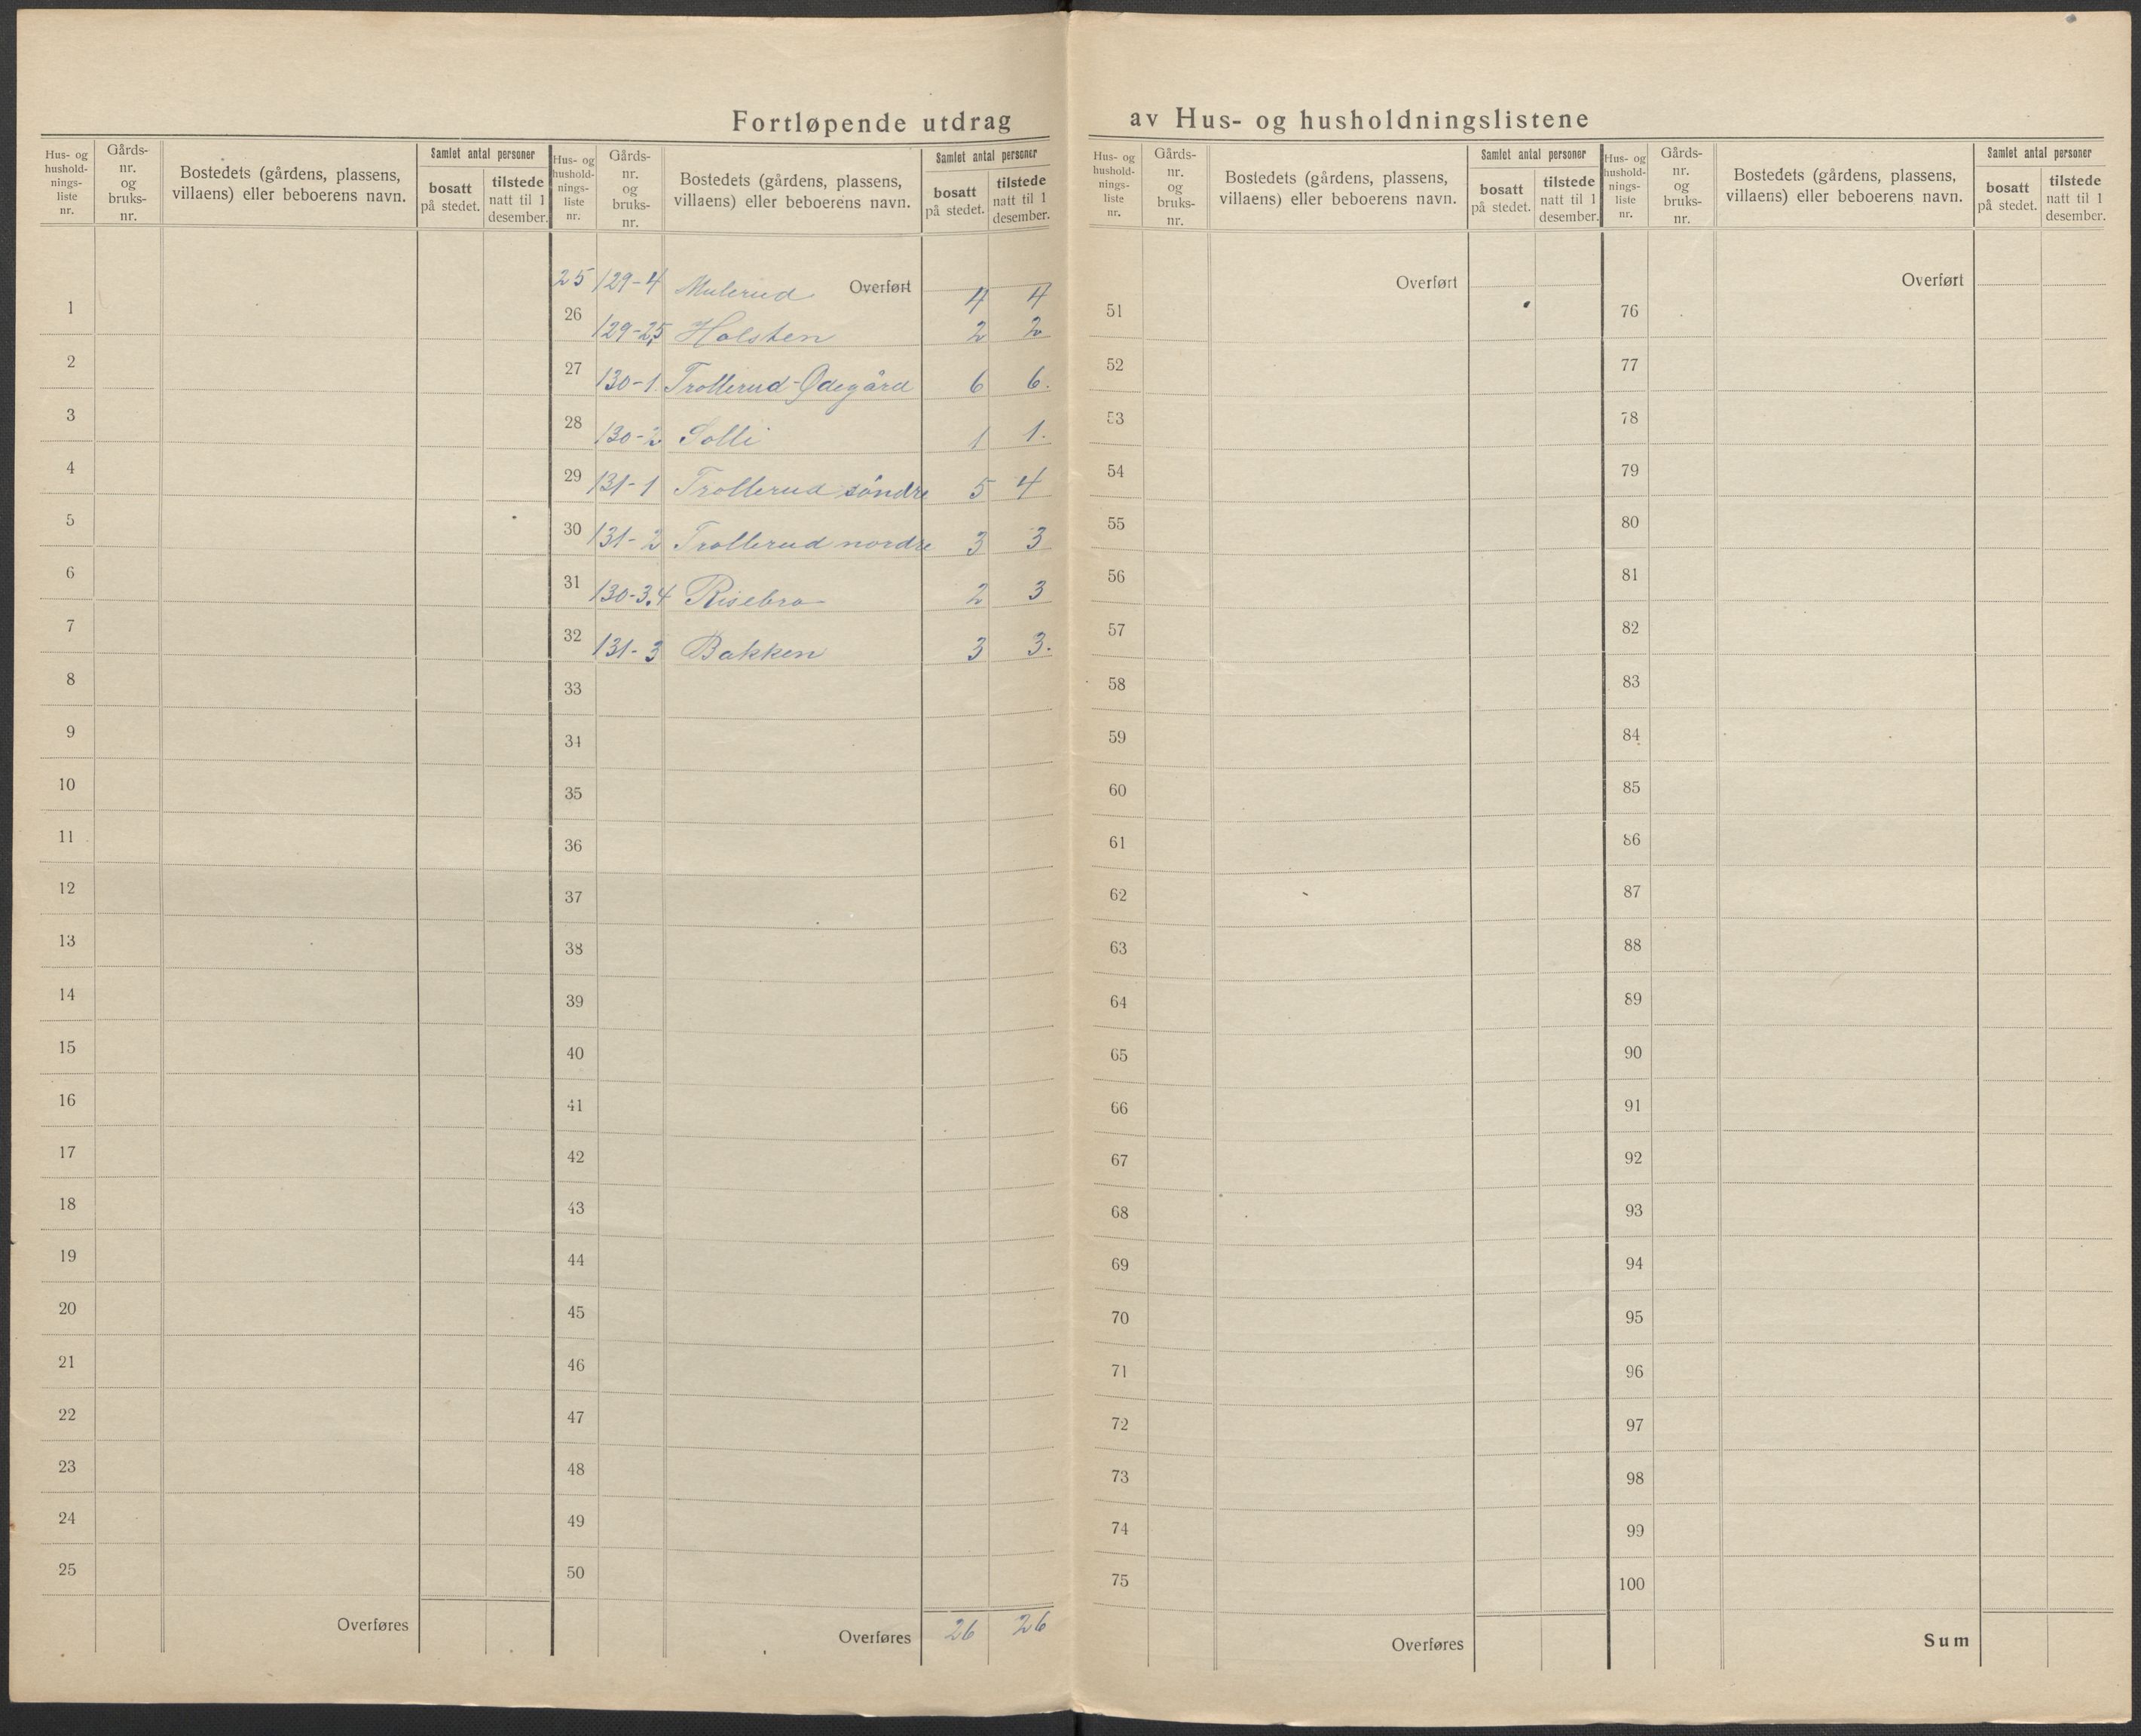 Fortløpende utdrag av Hus- og husholdningslistene
Hus- og hushold-nings-liste nr. Gårds-nr. og bruks-nr. Bostedets (gårdens, plassens, villaens) eller beboerens navn. Samlet antal personer bosatt på stedet. tilstede natt til 1 desember.
1
2
3
4
5
6
7
8
9
10
11
12
13
14
15
16
17
18
19
20
21
22
23
24
25
Overføres
Hus- og hushold-nings-liste nr. Gårds-nr. og bruks-nr. Bostedets (gårdens, plassens, villaens) eller beboerens navn. Samlet antal personer bosatt på stedet. tilstede natt til 1 desember.
25 129-4 Mulerud Overført 4 4
26 129-25 Holsten 2 2
27 130-1. Trollerud-Ødegård 6 6.
28 130-2 Solli 1 1.
29 131-1 Trollerud söndre 5 4
30 131-2 Trollerud nordre 3 3
31 130-3.4 Risebro 2 3
32 131-3 Bakken 3 3.
33
34
35
36
37
38
39
40
41
42
43
44
45
46
47
48
49
50
Overføres 26 26
Hus- og hushold-nings-liste nr. Gårds-nr. og bruks-nr. Bostedets (gårdens, plassens, villaens) eller beboerens navn. Samlet antal personer bosatt på stedet. tilstede natt til 1 desember.
Overført
51
52
53
54
55
56
57
58
59
60
61
62
63
64
65
66
67
68
69
70
71
72
73
74
75
Overføres
Hus- og hushold-nings-liste nr. Gårds-nr. og bruks-nr. Bostedets (gårdens, plassens, villaens) eller beboerens navn. Samlet antal personer bosatt på stedet. tilstede natt til 1 desember.
Overført
76
77
78
79
80
81
82
83
84
85
86
87
88
89
90
91
92
93
94
95
96
97
98
99
100
Sum